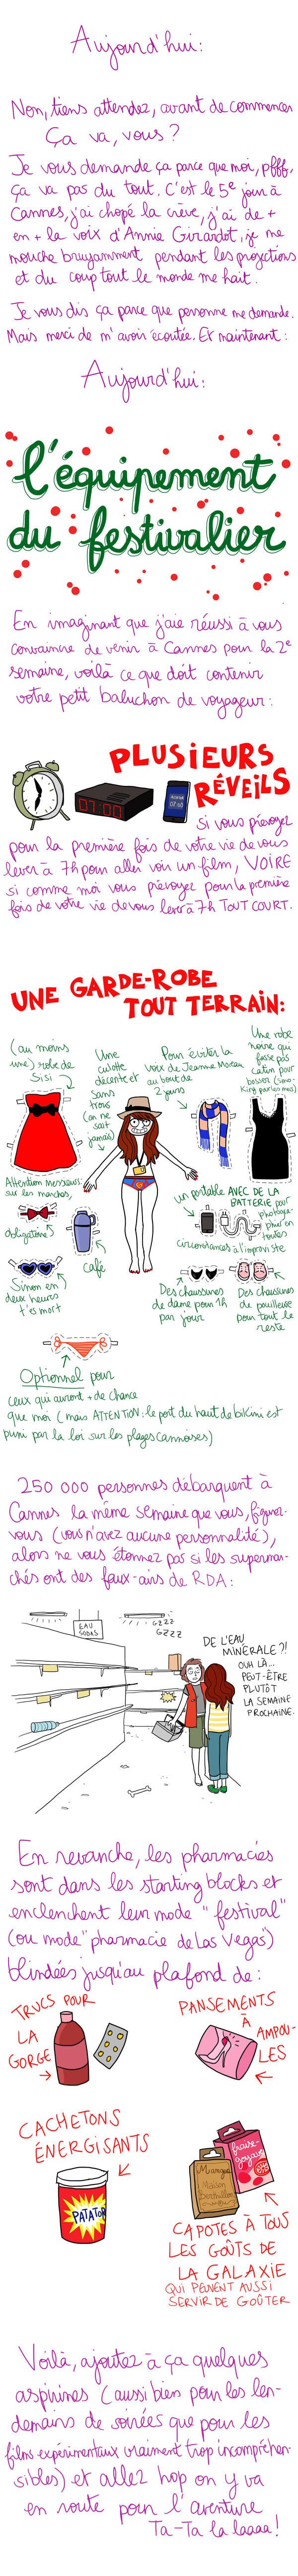 Aujourd'hui:
Non, tiens attendez, avant de commencer
Ça va, vous ?
Je vous demande ça parce que moi, pfff,
ça va pas du tout. C'est le 5e jour à
Cannes, j'ai chopé la crève, j'ai de +
en + la voix d'Annie Girardot, je me
mouche bruyamment pendant les projections
et du coup tout le monde me hait.
Je vous dis ça parce que personne me demande.
Mais merci de m'avoir écoutée. Et maintenant :
Aujourd'hui:
l'équipement
du festivalier
En imaginant que j'aie réussi à vous
convaincre de venir à Cannes pour la 2e
semaine, voilà ce que doit contenir
votre petit baluchon de voyageur :
PLUSIEURS
RÉVEILS
07:00
07:10
Si vous prévoyez
pour la première fois de votre vie de vous
lever à 7h pour aller voir un film, VOIRE
si comme moi vous prévoyez pour la première
fois de votre vie de vous lever à 7h TOUT COURT.
UNE GARDE-ROBE
TOUT TERRAIN:
(au moins
une) robe de
Sissi
Une
culotte
décente et
sans
trous
(on ne
sait
jamais)
Pour éviter la
voix de Jeanne Moreau
au bout de
2 jours
Une robe
noire qui
fasse pas
catin pour
bosser (smo-
king pour les mecs)
Attention Messieurs:
sur les marches,
obligatoire
Café
Sinon en
deux heures
t'es mort
un portable AVEC DE LA
BATTERIE pour
photogra-
phier en
toutes
circonstances à l'improviste
Des chaussures
de dame pour 1h
par jour
Des chaussures
de pouilleuse
pour tout le
reste
Optionnel pour
ceux qui auront + de chance
que moi (mais ATTENTION: le port du haut de bikini est
puni par la loi sur les plages cannoises)
250 000 personnes débarquent à
Cannes la même semaine que vous, figurez-
vous (vous n'avez aucune personnalité),
alors ne vous étonnez pas si les supermar-
chés ont des faux-airs de RDA :
EAU
SODAS
GZZZ
GZZZ
DE L'EAU
MINÉRALE ?!
OUH LÀ...
PEUT-ÊTRE
PLUTÔT
LA SEMAINE
PROCHAINE.
En revanche, les pharmacies
sont dans les starting blocks et
enclenchent leur mode "festival"
(ou mode "pharmacie de Las Vegas")
blindées jusqu'au plafond de :
TRUCS POUR
LA
GORGE
PANSEMENTS
À
AMPOU-
LES
CACHETONS
ÉNERGISANTS
PATATOR
fraise-
goyave
Maison
CAPOTES À TOUS
LES GOÛTS DE
LA GALAXIE
QUI PEUVENT AUSSI
SERVIR DE GOÛTER
Voilà, ajoutez à ça quelques
aspirines (aussi bien pour les len-
demains de soirées que pour les
films expérimentaux vraiment trop incompréhen-
sibles) et allez hop on y va
en route pour l'aventure
Ta-Ta la laaaa !